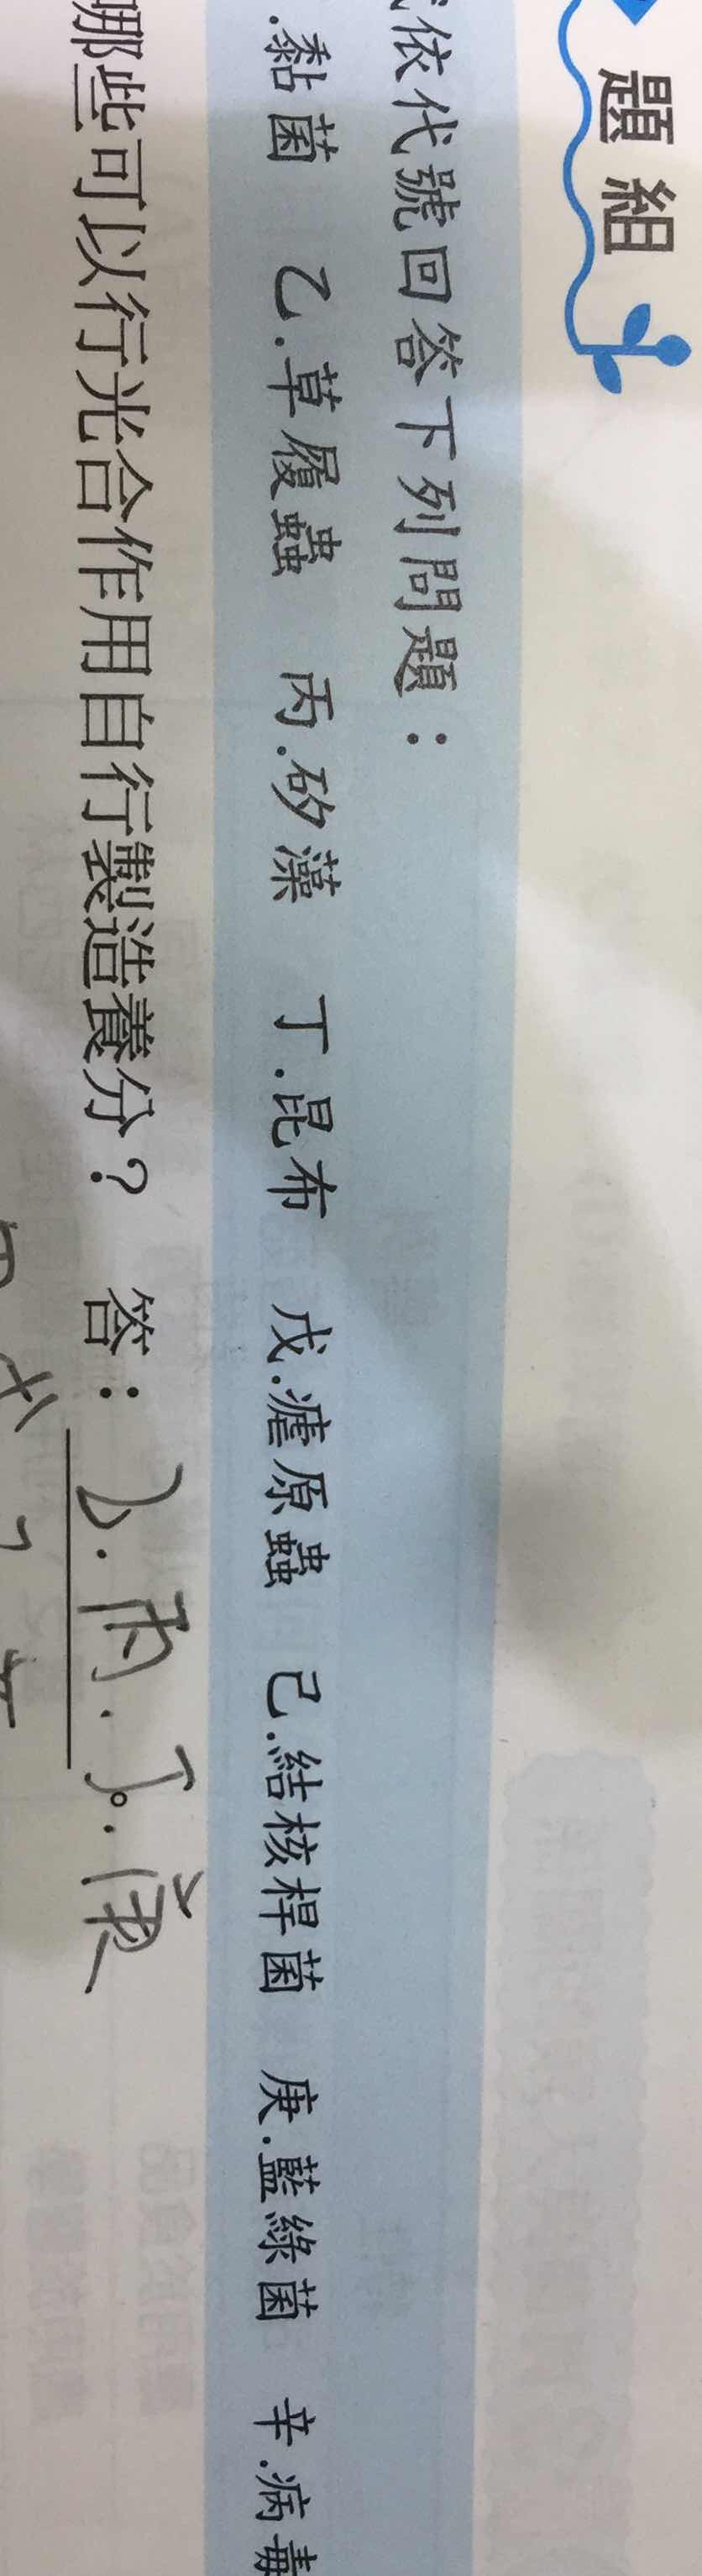 題組
依代號回答下列問題：
.黏菌 乙.草履蟲 丙.矽藻 丁.昆布 戊.瘧原蟲 己.結核桿菌 庚.藍綠菌 辛.病毒
哪些可以行光合作用自行製造養分？ 答：乙.丙.丁.庚